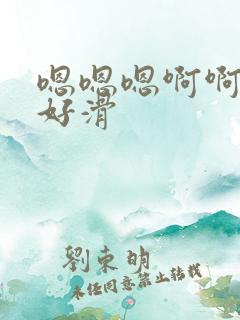 嗯嗯嗯啊啊
好滑
劉東明
未经同意禁止转载